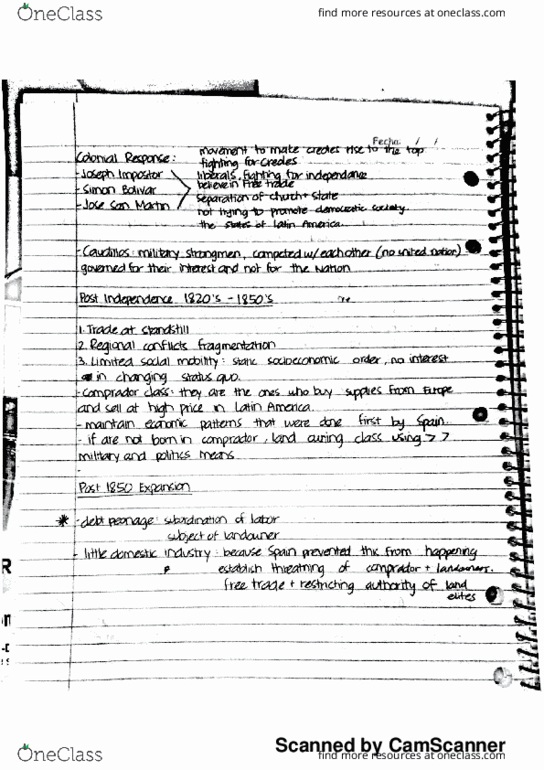 OneClass
find more resources at oneclass.com
Fecha / /
Colonial Response: movement to make creoles rise to the top
fighting for creoles
- Joseph Impostor liberals, fighting for independance
- Simon Bolivar believe in free trade
separation of church + state
- Jose San Martin not trying to promote democratic society
the states of Latin America.
- Caudillos: military strongmen, competed w/ each other (no united nation)
governed for their interest and not for the Nation
Post Independence 1820's - 1850's
1. Trade at standstill
2. Regional conflicts fragmentation
3. Limited social mobility: static socioeconomic order, no interest
in changing status quo.
- comprador class: they are the ones who buy supplies from Europe
and sell at high price in Latin America.
- maintain economic patterns that were done first by Spain.
- if are not born in comprador, land owning class using > >
military and politics means.
Post 1850 Expansion
* - debt peonage: subordination of labor
subject of landowner
- little domestic industry: because Spain prevented this from happening
establish threatning of comprador + landowners.
free trade + restricting authority of land
elites
Scanned by CamScanner
OneClass
find more resources at oneclass.com